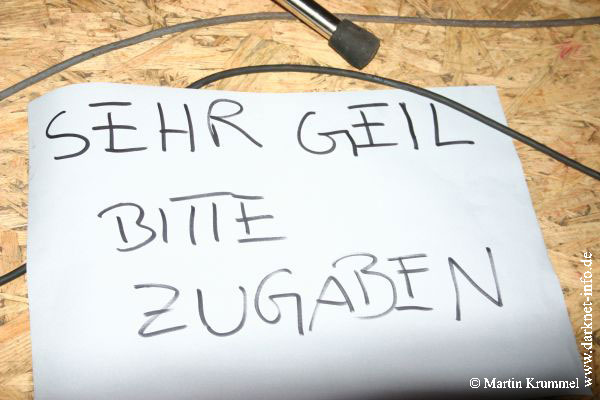 SEHR GEIL
BITTE
ZUGABEN
© Martin Krummel
www.darknet-info.de